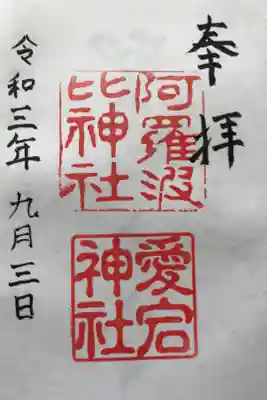 奉拝
阿羅波
比神社
愛宕
神社
令和三年 九月三日